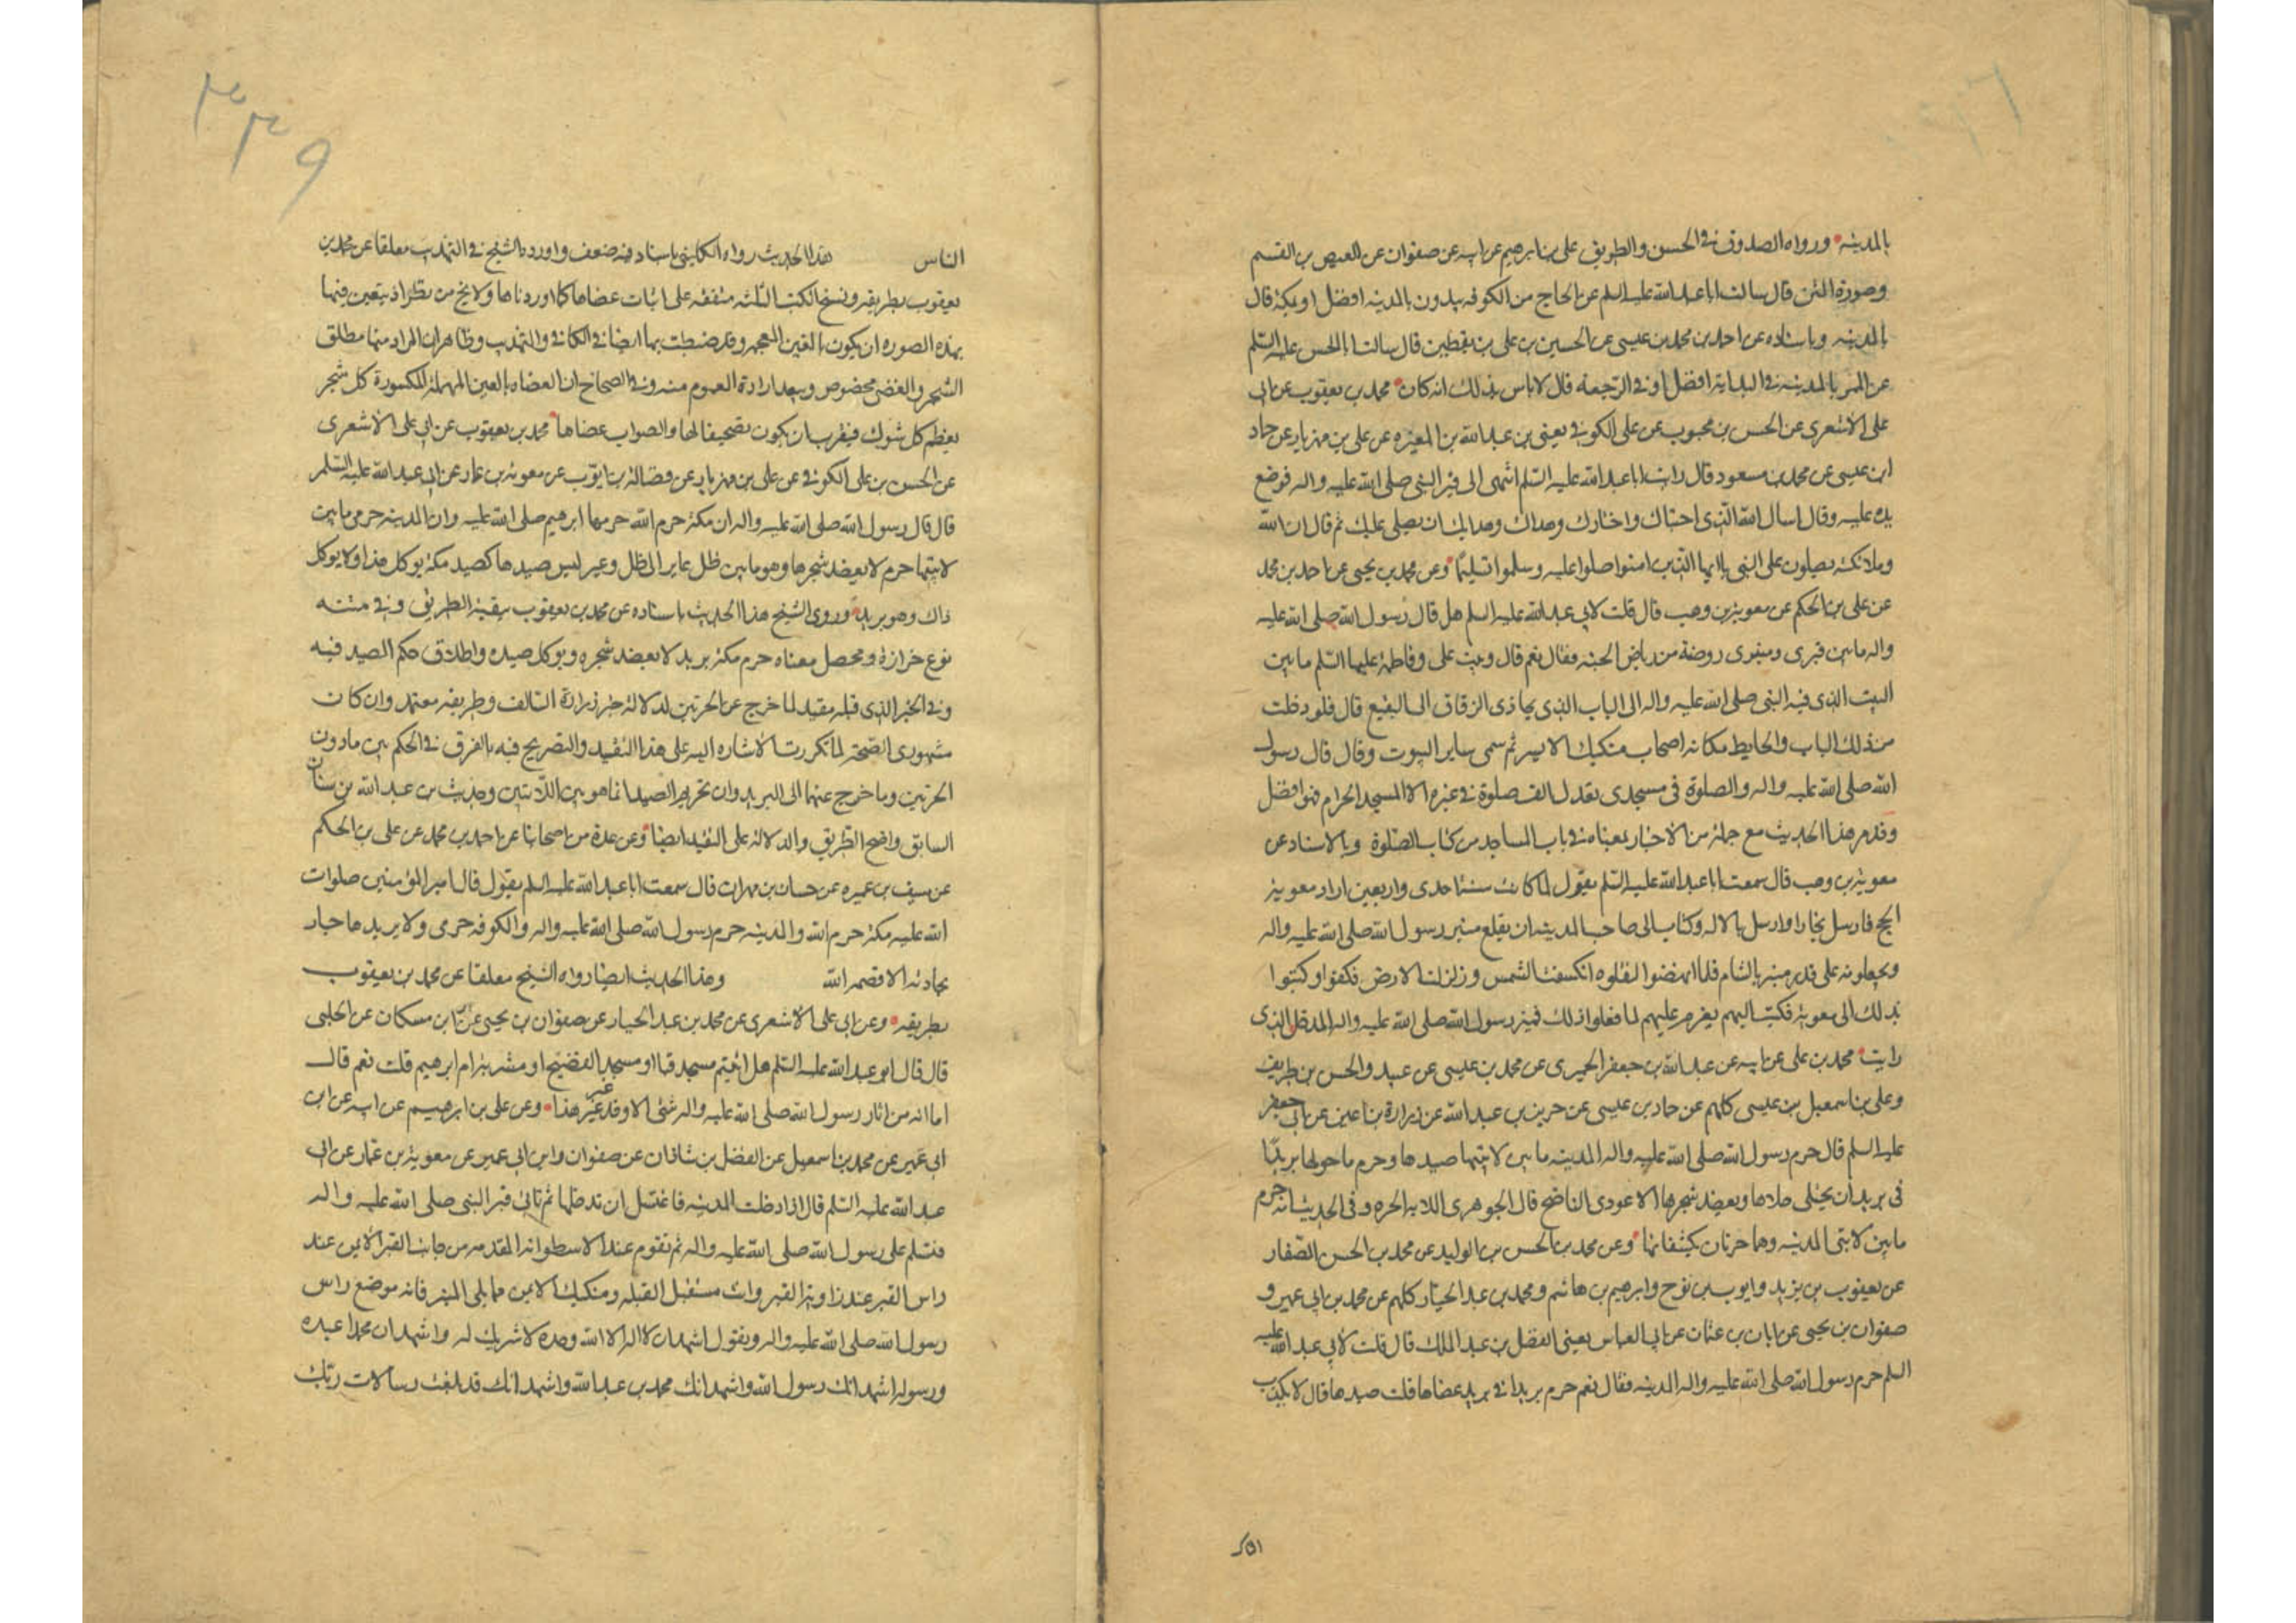 بالمدينة ورواه الصدوق في الحسن والطريق علي بن ابرهيم عن ابيه عن صفوان عن العيص بن القسم
وصورة المتن قال سالت اباعبدالله عليه السلم عن الحاج من الكوفه يبدون بالمدينه افضل او بمكة قال
بالمدينه وباسناده عن احمد بن محمد بن عيسى عن الحسين بن علي بن يقطين قال سالت ابا الحسن عليه السلم
عن الممر بالمدينه في البداية افضل او في الرجعه قال لاباس بذلك انه كان محمد بن يعقوب عن ابي
على الاشعرى عن الحسن بن محبوب عن علي الكوفي يعنى بن عبدالله بن المغيره عن علي بن مهزيار عن حماد
ابن عيسى عن محمد بن مسعود قال رايت اباعبدالله عليه السلم انتهى الى قبر النبي صلى الله عليه واله فوضع
يده عليه وقال اسال الله الذى اجتباك واختارك وهداك وهدى بك ان يصلى عليك ثم قال ان الله
وملائكته يصلون على النبي ياايها الذين امنوا صلوا عليه وسلموا تسليما وعن محمد بن يحيى عن احمد بن محمد
عن علي بن الحكم عن معوية بن وهب قال قلت لابي عبدالله عليه السلم هل قال رسول الله صلى الله عليه
واله مابين قبرى ومنبرى روضة من رياض الجنه فقال نعم قال وبيت علي وفاطمة عليهما السلم مابين
البيت الذى فيه النبي صلى الله عليه واله الى الباب الذى يحاذى الزقاق الى البقيع قال فلو دخلت
من ذلك الباب والحايط مكانه اصاب منكبك الايسر ثم سمى ساير البيوت وقال قال رسول
الله صلى الله عليه واله والصلوة في مسجدى تعدل الف صلوة في غيره الا المسجد الحرام فهو افضل
وقد مر هذا الحديث مع جملة من الاخبار بمعناه في باب المساجد من كتاب الصلوة وبالاسناد عن
معوية بن وهب قال سمعت اباعبدالله عليه السلم يقول لما كانت سنة احدى واربعين اراد معوية
الحج فارسل نجارا وارسل بالاله وكتب الى صاحب المدينه ان يقلع منبر رسول الله صلى الله عليه واله
ويجعلونه على قدر منبره بالشام فلما نهضوا ليقلعوه انكسفت الشمس وزلزلت الارض فكفوا وكتبوا
بذلك الى معوية فكتب اليهم يعزم عليهم لما فعلوا ذلك فمنبر رسول الله صلى الله عليه واله المدخل الذى
رايت محمد بن علي عن ابيه عن عبدالله بن جعفر الحميرى عن محمد بن عيسى عن عبيد والحسن بن ظريف
وعلى بن اسمعيل بن عيسى كلهم عن حماد بن عيسى عن حريز بن عبدالله عن زرارة بن اعين عن ابي جعفر
عليه السلم قال حرم رسول الله صلى الله عليه واله المدينه مابين لابتيها صيدها وحرم ماحولها بريدا
في بريد ان يختلى خلاها ويعضد شجرها الا عودى الناضح قال الجوهرى اللابه الحره وفي الحديث انه حرم
مابين لابتي المدينه وهما حرتان يكتنفانها وعن محمد بن الحسن بن الوليد عن محمد بن الحسن الصفار
عن يعقوب بن يزيد وايوب بن نوح وابرهيم بن هاشم ومحمد بن عبد الجبار كلهم عن محمد بن ابي عمير و
صفوان بن يحيى عن ابان بن عثمان عن ابي العباس يعني الفضل بن عبد الملك قال قلت لابي عبدالله عليه
السلم حرم رسول الله صلى الله عليه واله المدينه فقال نعم حرم بريدا في بريد عضاها قلت صيدها قال لا يكذب
٣٣٩
الناس هذا الحديث رواه الكليني باسناد فيه ضعف واورده الشيخ في التهذيب معلقا عن محمد بن
يعقوب بطريقه ونسخ الكتب الثلثه متفقه على اثبات عضاها كما اوردناها ولا يخ من نظر اذ يتعين فيها
بهذه الصوره ان يكون بالغين المعجمه وقد ضبطت بها ايضا في الكافي والتهذيب وظاهر ان المراد منها مطلق
الشجر والغضى مخصوص ويبعد ارادة العموم منه وفي الصحاح ان العضاه بالعين المهملة المكسورة كل شجر
يعظم كل شوك فيقرب ان يكون تصحيفا لها والصواب عضاها محمد بن يعقوب عن ابي على الاشعرى
عن الحسن بن على الكوفي عن على بن مهزيار عن فضالة بن ايوب عن معوية بن عمار عن ابي عبدالله عليه السلم
قال قال رسول الله صلى الله عليه واله ان مكة حرم الله حرمها ابرهيم صلى الله عليه وان المدينه حرمى مابين
لابتيها حرم لايعضد شجرها وهو مابين ظل عاير الى ظل وعير ليس صيدها كصيد مكة يوكل هذا ولا يوكل
ذاك وهو بريد وروى الشيخ هذا الحديث باسناده عن محمد بن يعقوب ببقية الطريق وفي متنه
نوع حزازة ومحصل معناه حرم مكة بريد لايعضد شجره ويوكل صيده واطلاق حكم الصيد فيه
وفي الخبر الذى قبله مقيد لما خرج عن الحرتين لدلالة خبر زرارة السالف وطريقه معتمد وان كان
مشهورى الصحة لما تكررت الاشاره اليه على هذا التقييد والتصريح فيه بالفرق في الحكم بين مادون
الحرتين وما خرج عنهما الى البريد وان تحريم الصيد انما هو بين اللابتين وحديث بن عبدالله بن سنان
السابق واضح الطريق والدلالة على التقييد ايضا وعن عدة من اصحابنا عن احمد بن محمد عن على بن الحكم
عن سيف بن عميره عن حسان بن مهران قال سمعت اباعبدالله عليه السلم يقول قال امير المؤمنين صلوات
الله عليه مكة حرم الله والمدينه حرم رسول الله صلى الله عليه واله والكوفه حرمى ولا يريدها جبار
بحادثة الا قصمه الله وهذا الحديث ايضا رواه الشيخ معلقا عن محمد بن يعقوب
بطريقه وعن ابي على الاشعرى عن محمد بن عبد الجبار عن صفوان بن يحيى عن ابن مسكان عن الحلبي
قال قال ابو عبدالله عليه السلم هل اتيتم مسجد قبا او مسجد الفضيخ او مشربة ام ابرهيم قلت نعم قال
اما انه من اثار رسول الله صلى الله عليه واله شئ الا وقد غير غير هذا وعن على بن ابرهيم عن ابيه عن ابن
ابي عمير عن محمد بن اسمعيل عن الفضل بن شاذان عن صفوان وابن ابي عمير عن معوية بن عمار عن ابي
عبدالله عليه السلم قال اذا دخلت المدينه فاغتسل ان تدخلها ثم تاتي قبر النبي صلى الله عليه واله
فتسلم على رسول الله صلى الله عليه واله ثم تقوم عند الاسطوانه المقدمه من جانب القبر الايمن عند
راس القبر عند زاوية القبر وانت مستقبل القبله ومنكبك الايمن مما يلى المنبر فانه موضع راس
رسول الله صلى الله عليه واله وتقول اشهد ان لااله الا الله وحده لا شريك له واشهد ان محمدا عبده
ورسوله اشهد انك رسول الله واشهد انك محمد بن عبدالله واشهد انك قد بلغت رسالات ربك